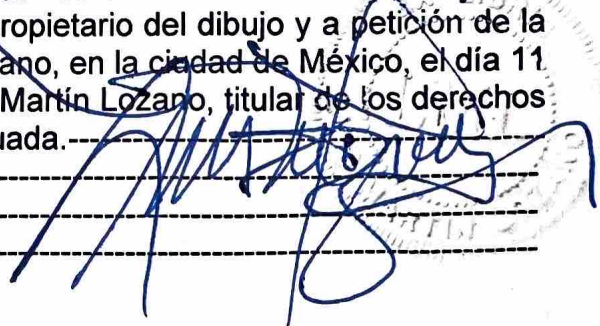 ropietario del dibujo y a petición de la
ano, en la ciudad de México, el día 11
Martín Lozano, titular de los derechos
uada.------------------------------------------------
------------------------------------------------------------
------------------------------------------------------------
------------------------------------------------------------